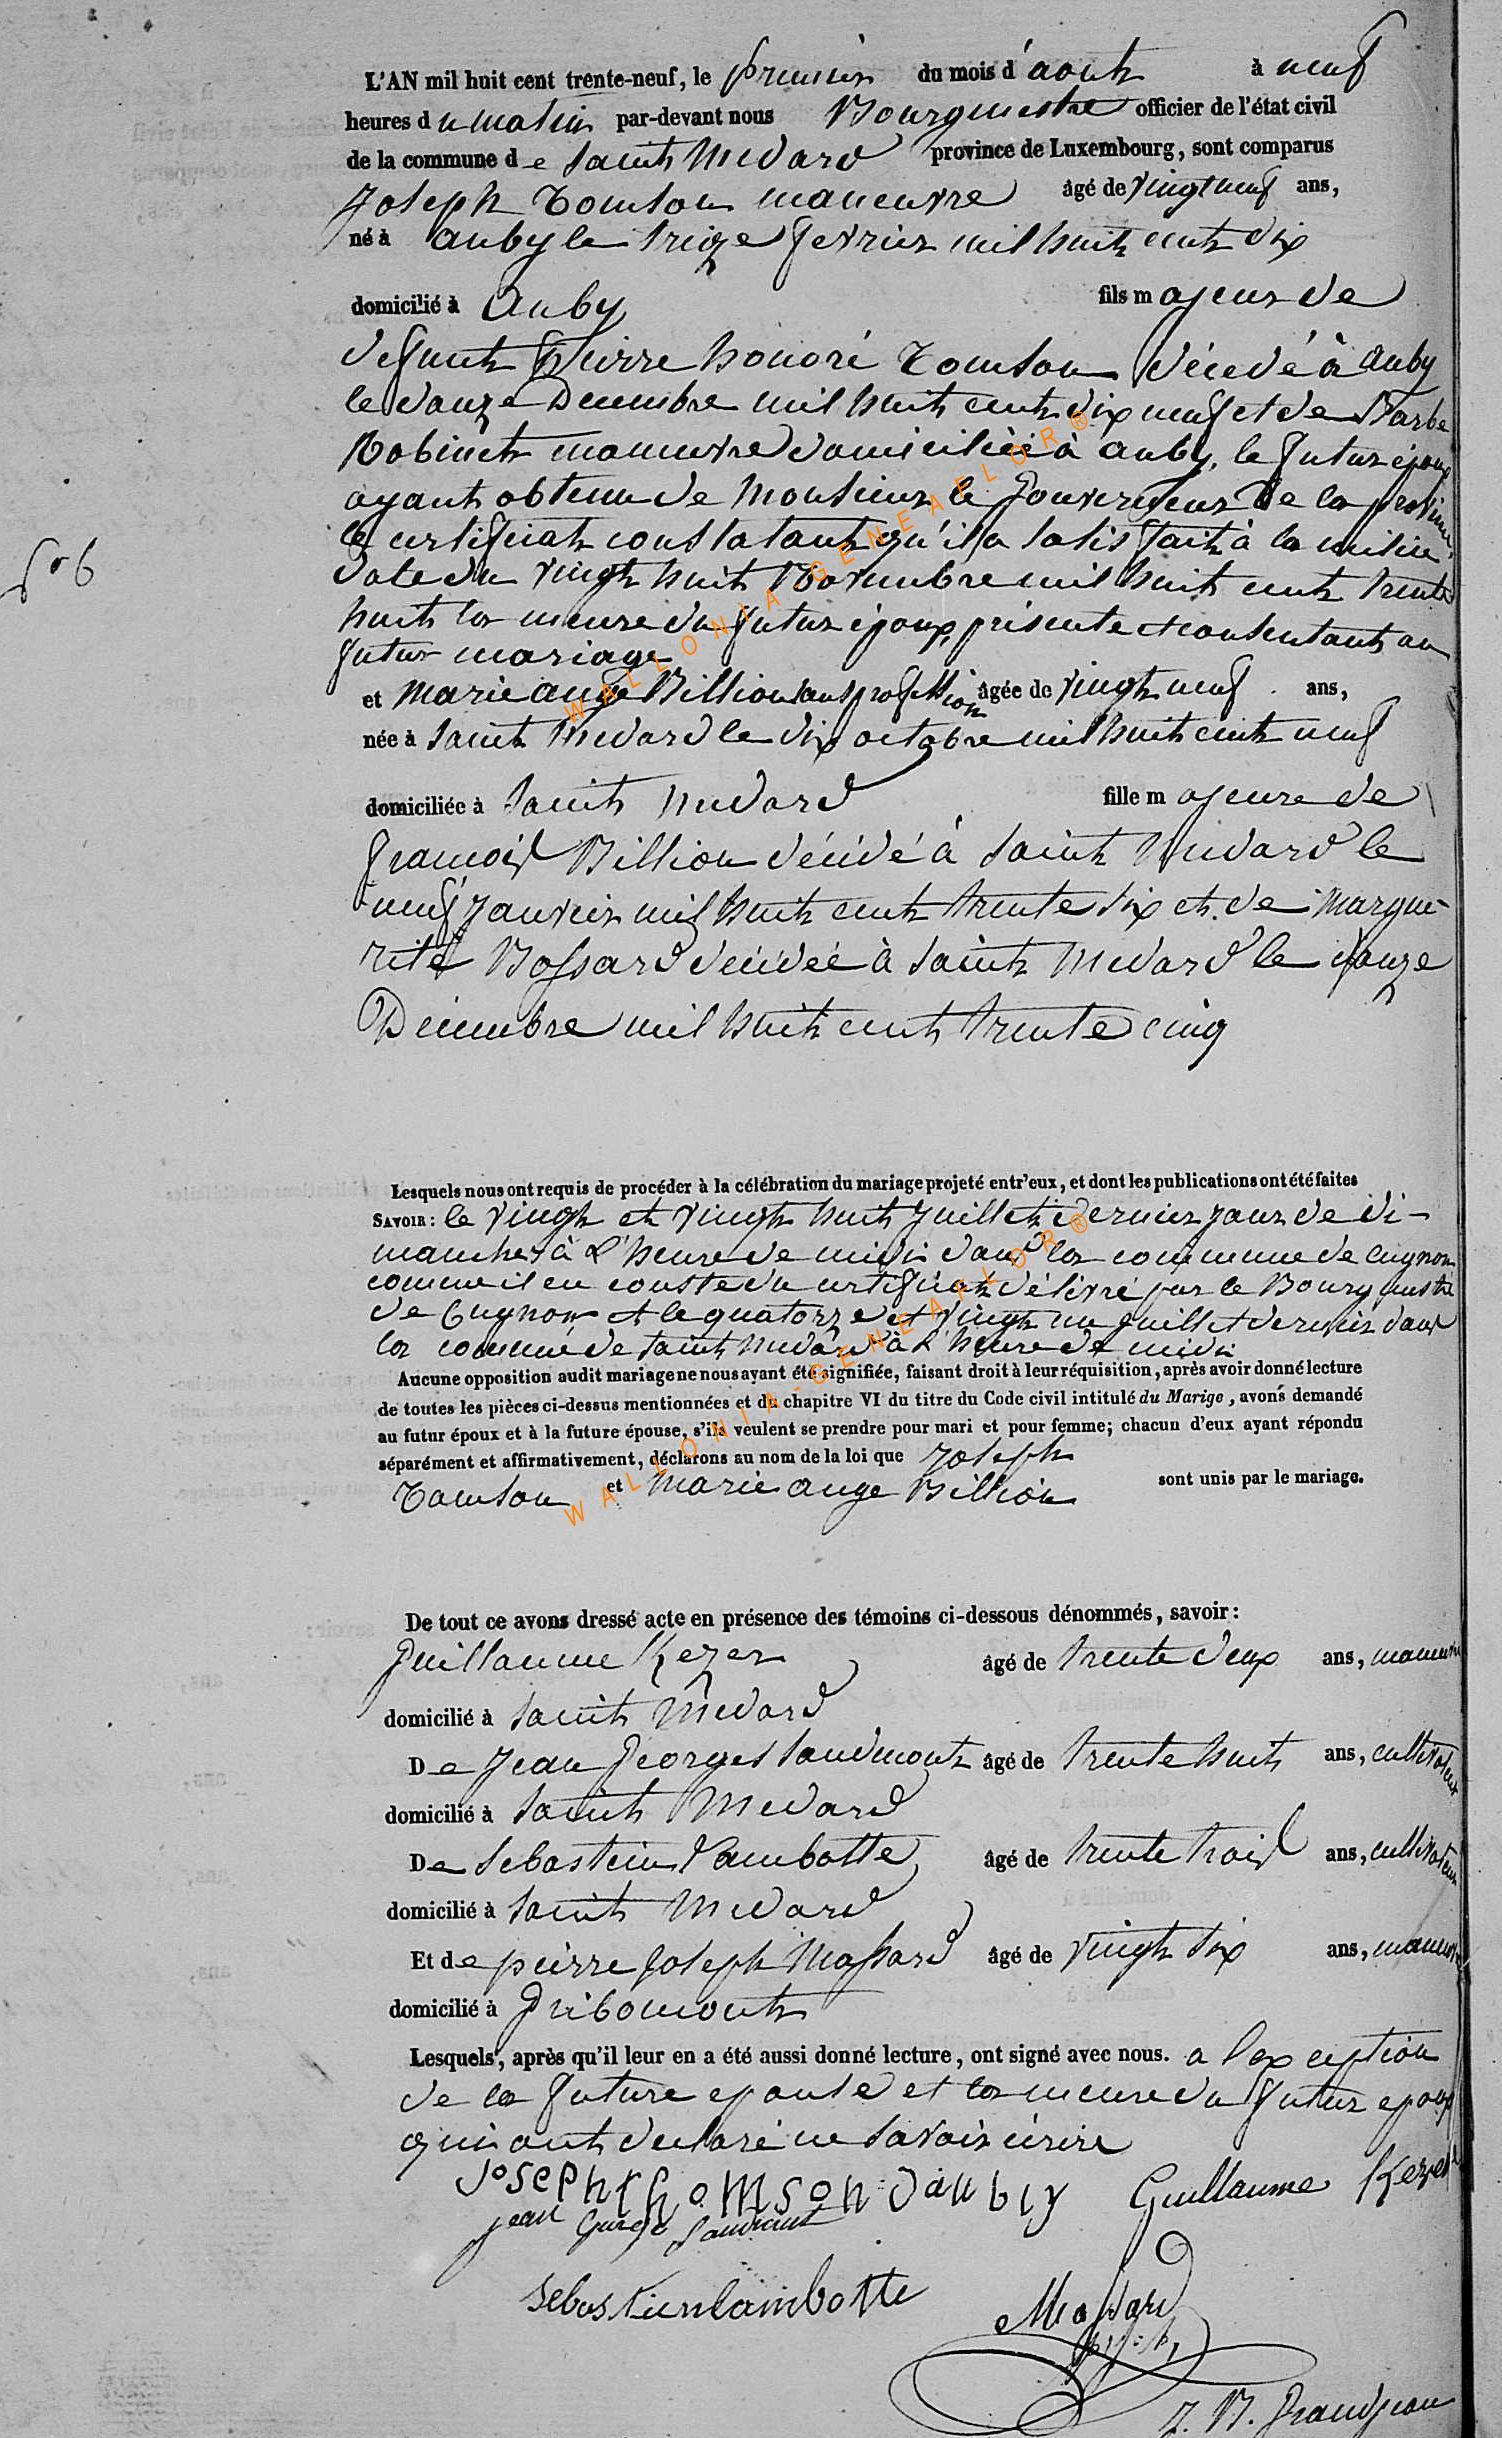 L'AN mil huit cent trente-neuf, le premier du mois d'aout à neuf
heures du matin par-devant nous Bourgmestre officier de l'état civil
de la commune de Saint Medard province de Luxembourg, sont comparus
Joseph Tomson maneuvre âgé de vingt neuf ans,
né à auby le treize fevrier mil huit cent dix
domicilié à Auby fils majeur de
defunt pierre honoré Tomson décédé à auby
le douze Decembre mil huit cent dix neuf et de Barbe
Robinet maneuvre domiciliée à auby, le futur époux
ayant obtenu de Monsieur le Gouverneur de la province
le certificat constatant qu'il a satisfait à la milice
date du vingt huit Novembre mil huit cent trente
huit la mere du futur époux, présente et consentant au
futur mariage
et Marie ange Billion sans profession âgée de vingt neuf ans,
née à Saint Medard le dix octobre mil huit cent neuf
domiciliée à Saint Medard fille majeure de
francois Billion décédé à Saint Medard le
neuf janvier mil huit cent trente six et de Margue-
rite Bossard décédée à Saint Medard le douze
Décembre mil huit cent trente cinq
506
Lesquels nous ont requis de procéder à la célébration du mariage projeté entr'eux, et dont les publications ont été faites
SAVOIR : le vingt et vingt huit juillet dernier jour de di-
manches à l'heure de midi dans la commune de Cugnon
comme il en conste du certificat délivré par le Bourgmestre
de Cugnon et le quatorze et vingt un juillet dernier dans
la commune de Saint Medard à l'heure de midi
Aucune opposition audit mariage ne nous ayant été signifiée, faisant droit à leur réquisition, après avoir donné lecture
de toutes les pièces ci-dessus mentionnées et du chapitre VI du titre du Code civil intitulé du Marige, avons demandé
au futur époux et à la future épouse, s'ils veulent se prendre pour mari et pour femme; chacun d'eux ayant répondu
séparément et affirmativement, déclarons au nom de la loi que Joseph
Tomson et Marie ange Billion sont unis par le mariage.
De tout ce avons dressé acte en présence des témoins ci-dessous dénommés, savoir:
Guillaume Kezer âgé de trente deux ans, maneuvre
domicilié à Saint Medard
De Jean Georges Saudmont âgé de trente huit ans, cultivateur
domicilié à Saint Medard
De Sebastien Lambotte âgé de trente trois ans, cultivateur
domicilié à Saint Medard
Et de pierre Joseph Massard âgé de vingt six ans, maneuvre
domicilié à Gribomont
Lesquels, après qu'il leur en a été aussi donné lecture, ont signé avec nous. a l'exception
de la future epouse et la mere du futur epoux
qui ont declaré ne savoir écrire
Joseph thomson d'auby Guillaume Kezer
jean Gorge Saudmont
Sebastien lambotte Massard
J. B. Grandjean
WALLONIA-GENEAFLOR®
WALLONIA-GENEAFLOR®